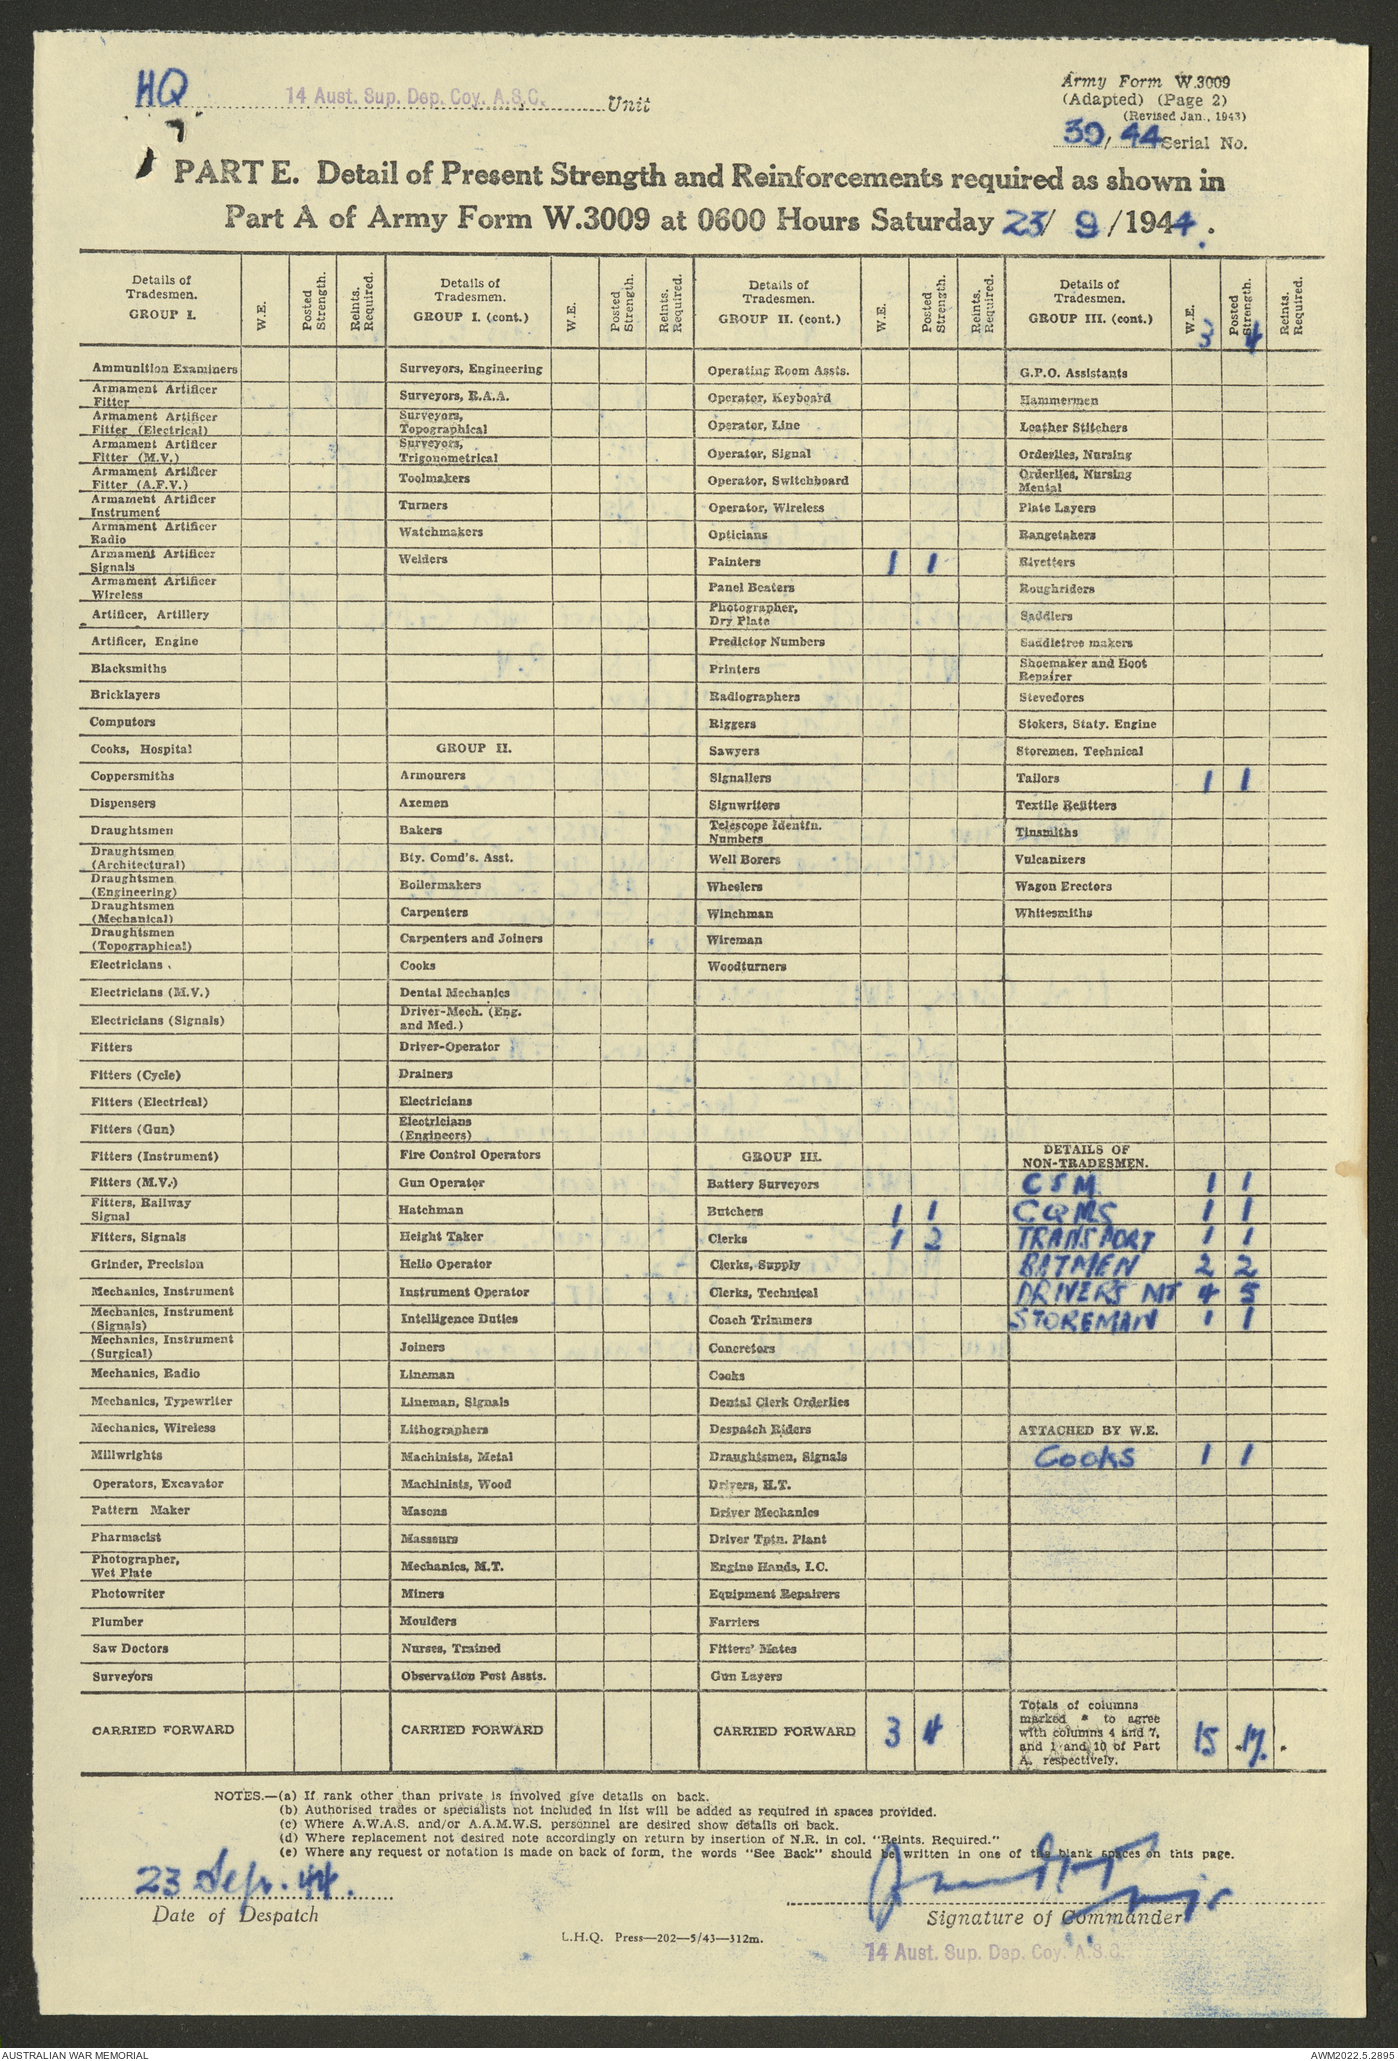 HQ 14 Aust. Sup. Dep. Coy. A.S.C. Unit
Army Form W.3009
(Adapted) (Page 2)
(Revised Jan., 1943)
39/ 44 Serial No.
PART E. Detail of Present Strength and Reinforcements required as shown in
Part A of Army Form W.3009 at 0600 Hours Saturday 23/ 9 /1944.
Details of Tradesmen. GROUP I. W.E. Posted Strength. Reints. Required.
Details of Tradesmen. GROUP I. (cont.) W.E. Posted Strength. Reints. Required.
Details of Tradesmen. GROUP II. (cont.) W.E. Posted Strength. Reints. Required.
Details of Tradesmen. GROUP III. (cont.) W.E. 3 Posted Strength. 4 Reints. Required.
Ammunition Examiners
Armament Artificer
Fitter
Armament Artificer
Fitter (Electrical)
Armament Artificer
Fitter (M.V.)
Armament Artificer
Fitter (A.F.V.)
Armament Artificer
Instrument
Armament Artificer
Radio
Armament Artificer
Signals
Armament Artificer
Wireless
Artificer, Artillery
Artificer, Engine
Blacksmiths
Bricklayers
Computors
Cooks, Hospital
Coppersmiths
Dispensers
Draughtsmen
Draughtsmen
(Architectural)
Draughtsmen
(Engineering)
Draughtsmen
(Mechanical)
Draughtsmen
(Topographical)
Electricians
Electricians (M.V.)
Electricians (Signals)
Fitters
Fitters (Cycle)
Fitters (Electrical)
Fitters (Gun)
Fitters (Instrument)
Fitters (M.V.)
Fitters, Railway
Signal
Fitters, Signals
Grinder, Precision
Mechanics, Instrument
Mechanics, Instrument
(Signals)
Mechanics, Instrument
(Surgical)
Mechanics, Radio
Mechanics, Typewriter
Mechanics, Wireless
Millwrights
Operators, Excavator
Pattern Maker
Pharmacist
Photographer,
Wet Plate
Photowriter
Plumber
Saw Doctors
Surveyors
CARRIED FORWARD
Surveyors, Engineering
Surveyors, R.A.A.
Surveyors,
Topographical
Surveyors,
Trigonometrical
Toolmakers
Turners
Watchmakers
Welders
GROUP II.
Armourers
Axemen
Bakers
Bty. Comd's. Asst.
Boilermakers
Carpenters
Carpenters and Joiners
Cooks
Dental Mechanics
Driver-Mech. (Eng.
and Med.)
Driver-Operator
Drainers
Electricians
Electricians
(Engineers)
Fire Control Operators
Gun Operator
Hatchman
Height Taker
Helio Operator
Instrument Operator
Intelligence Duties
Joiners
Lineman
Lineman, Signals
Lithographers
Machinists, Metal
Machinists, Wood
Masons
Masseurs
Mechanics, M.T.
Miners
Moulders
Nurses, Trained
Observation Post Assts.
CARRIED FORWARD
Operating Room Assts.
Operator, Keyboard
Operator, Line
Operator, Signal
Operator, Switchboard
Operator, Wireless
Opticians
Painters 1 1
Panel Beaters
Photographer,
Dry Plate
Predictor Numbers
Printers
Radiographers
Riggers
Sawyers
Signallers
Signwriters
Telescope Identfn.
Numbers
Well Borers
Wheelers
Winchman
Wireman
Woodturners
GROUP III.
Battery Surveyors
Butchers 1 1
Clerks 1 2
Clerks, Supply
Clerks, Technical
Coach Trimmers
Concretors
Cooks
Dental Clerk Orderlies
Despatch Riders
Draughtsmen, Signals
Drivers, H.T.
Driver Mechanics
Driver Tptn. Plant
Engine Hands, I.C.
Equipment Repairers
Farriers
Fitters' Mates
Gun Layers
CARRIED FORWARD 3 4
G.P.O. Assistants
Hammermen
Leather Stitchers
Orderlies, Nursing
Orderlies, Nursing
Mental
Plate Layers
Rangetakers
Rivetters
Roughriders
Saddlers
Saddletree makers
Shoemaker and Boot
Repairer
Stevedores
Stokers, Staty. Engine
Storemen, Technical
Tailors 1 1
Textile Refitters
Tinsmiths
Vulcanizers
Wagon Erectors
Whitesmiths
DETAILS OF
NON-TRADESMEN.
CSM 1 1
CQMS 1 1
TRANSPORT 1 1
BATMEN 2 2
DRIVERS MT 4 5
STOREMAN 1 1
ATTACHED BY W.E.
Cooks 1 1
Totals of columns
marked * to agree
with columns 4 and 7,
and 1 and 10 of Part
A, respectively. 15 * 17. *
NOTES.—(a) If rank other than private is involved give details on back.
(b) Authorised trades or specialists not included in list will be added as required in spaces provided.
(c) Where A.W.A.S. and/or A.A.M.W.S. personnel are desired show details on back.
(d) Where replacement not desired note accordingly on return by insertion of N.R. in col. "Reints. Required."
(e) Where any request or notation is made on back of form, the words "See Back" should be written in one of the blank spaces on this page.
23 Sep. 44.
Date of Despatch
Signature of Commander
L.H.Q. Press—202—5/43—312m.
14 Aust. Sup. Dep. Coy. A.S.C.
AUSTRALIAN WAR MEMORIAL
AWM2022.5.2895